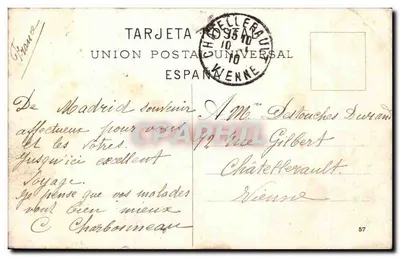 France
TARJETA
UNION POSTAL UNIVERSAL
ESPAÑA
CHATELLERAULT
10 - 1
10
VIENNE
De Madrid souvenir
affectueux pour vous
et les vôtres.
Jusqu'ici excellent
voyage.
Je pense que vos malades
vont bien mieux
C Charbonneau
A Mme Destouches Durand
92 Rue Gilbert
Châtellerault.
Vienne
57